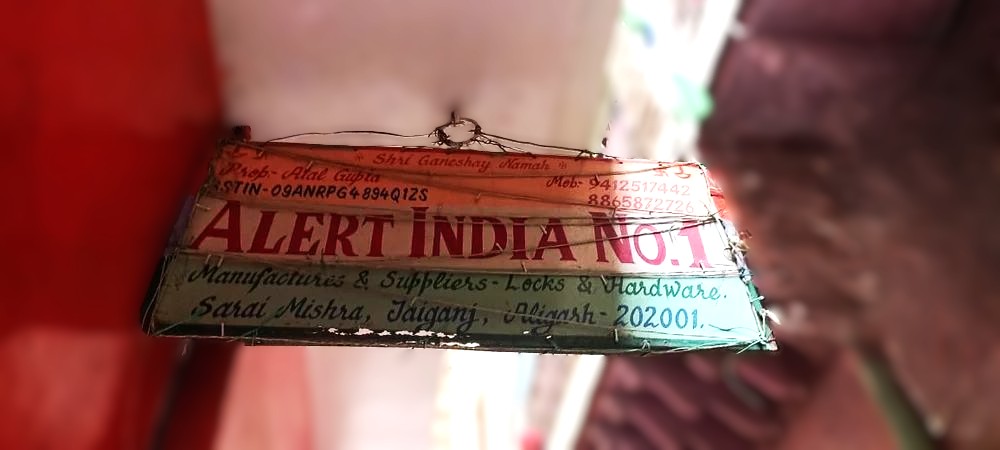 * Shri Ganeshay Namah *
Prop:- Atal Gupta
Mob:- 9412517442
GSTIN-09ANRPG4894Q1ZS
8865872726
ALERT INDIA No.1
Manufactures & Suppliers- Locks & Hardware.
Sarai Mishra, Jaiganj, Aligarh- 202001.